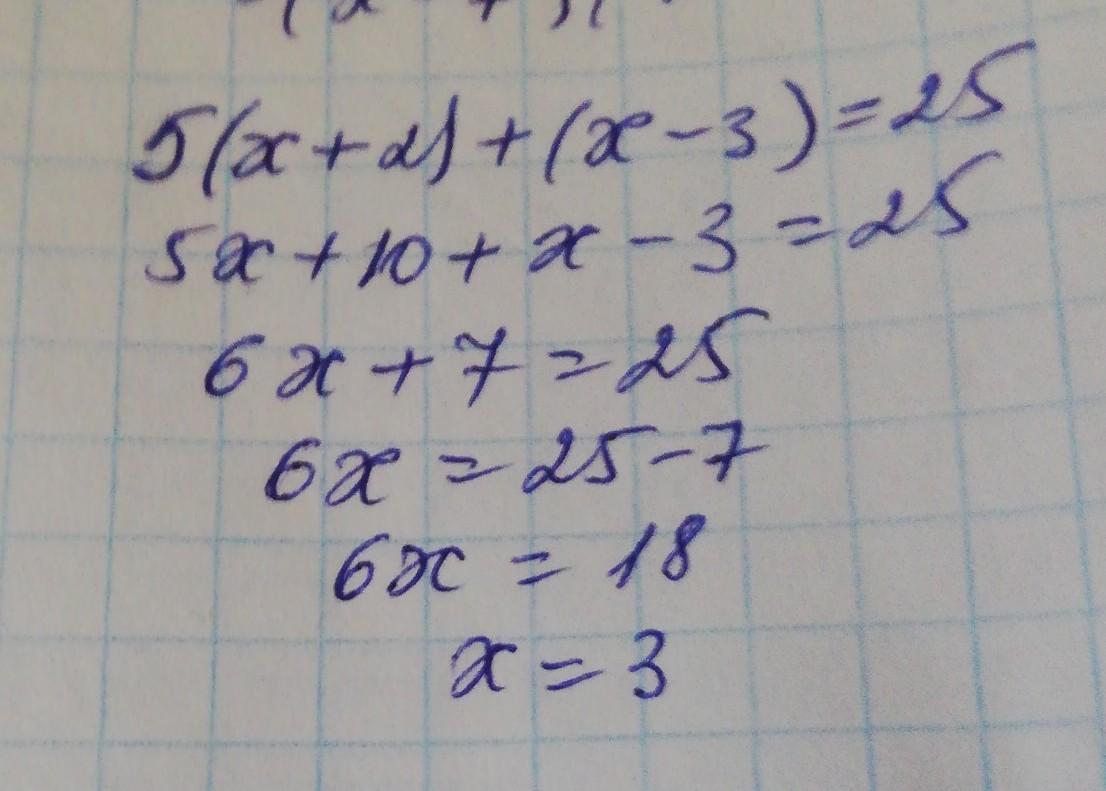 5(x+2)+(x-3)=25
5x+10+x-3=25
6x+7=25
6x=25-7
6x=18
x=3